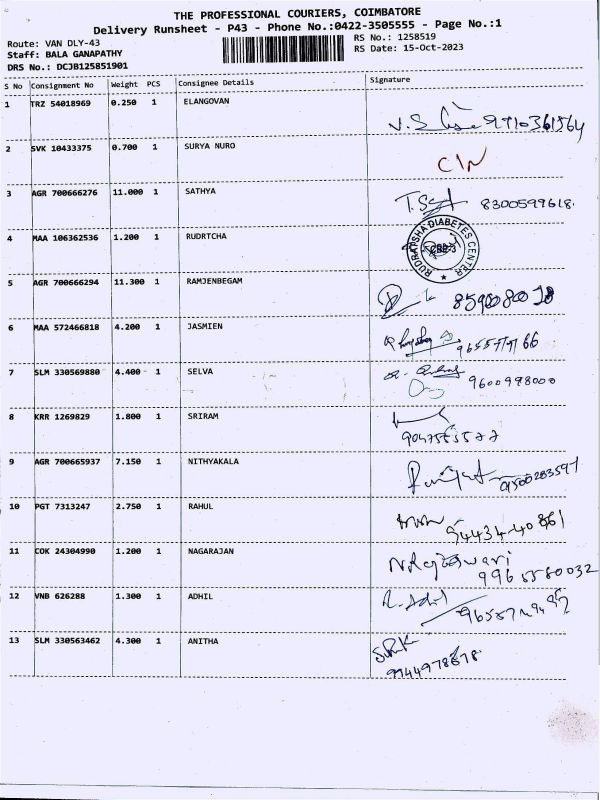 THE PROFESSIONAL COURIERS, COIMBATORE
Delivery Runsheet - P43 - Phone No.:0422-3505555 - Page No.:1
Route: VAN DLY-43
RS No.: 1258519
Staff: BALA GANAPATHY
RS Date: 15-Oct-2023
DRS No.: DCJB125851901
S No Consignment No Weight PCS Consignee Details Signature
1 TRZ 54018969 0.250 1 ELANGOVAN
2 SVK 10433375 0.700 1 SURYA NURO
3 AGR 700666276 11.000 1 SATHYA 8300599618
4 MAA 106362536 1.200 1 RUDRTCHA
RUDRATSHA DIABETES CENTER
5 AGR 700666294 11.300 1 RAMJENBEGAM
6 MAA 572466818 4.200 1 JASMIEN
7 SLM 330569880 4.400 1 SELVA
9600998000
8 KRR 1269829 1.800 1 SRIRAM
9 AGR 700665937 7.150 1 NITHYAKALA
10 PGT 7313247 2.750 1 RAHUL
94434-40861
11 COK 24304990 1.200 1 NAGARAJAN
9965580032
12 VNB 626288 1.300 1 ADHIL
13 SLM 330563462 4.300 1 ANITHA